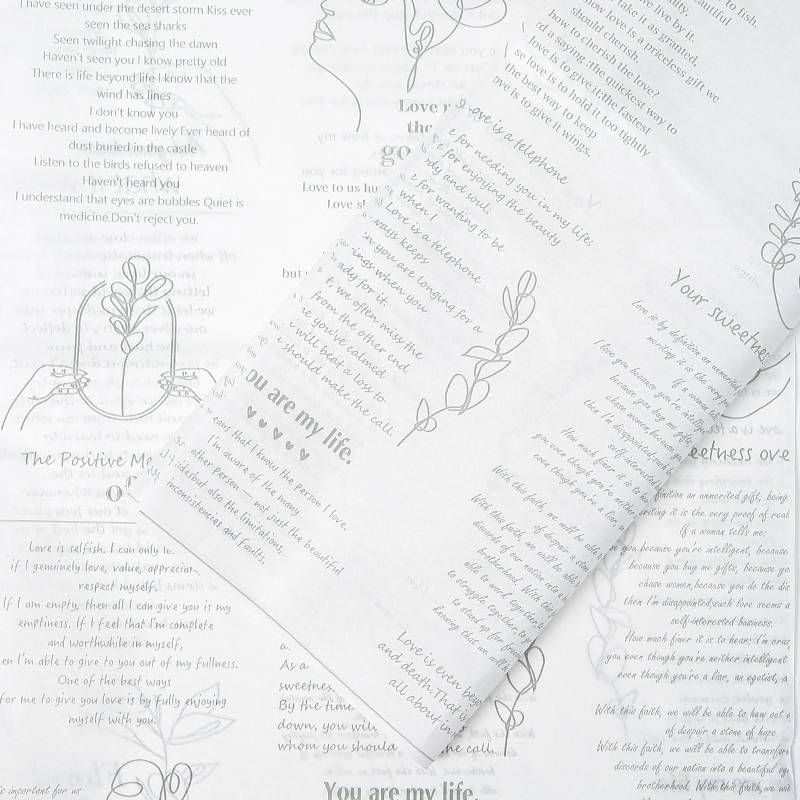 I have seen under the desert storm Kiss ever
seen the sea sharks
Seen twilight chasing the dawn
Haven't seen you I know pretty old
There is life beyond life I know that the
wind has lines
I don't know you
I have heard and become lively Ever heard of
dust buried in the castle
Listen to the birds refused to heaven
Haven't heard you
I understand that eyes are bubbles Quiet is
medicine.Don't reject you.
The Positive Me
Love is selfish. I can only lo
if I genuinely love, value, appreciat
respect myself.
If I am empty, then all I can give you is my
emptiness. If I feel that I'm complete
and worthwhile in myself,
en I'm able to give to you out of my fullness.
One of the best ways
for me to give you love is by fully enjoying
myself with you.
is important for us
Love
the
go
Love to us hu
Love s
but
we live by it.
take it as granted,
now love is a priceless gift we
should cherish.
how to cherish the love?
d a saying :the quickest way to
love is to give it;the fastest
se love is to hold it too tightly
the best way to keep
ove is to give it wings.
ove is a telephone
e for needing you in my life;
e for enjoying the beauty
dy and soul;
e for wanting to be
when I
Love is a telephone
ways keeps
n you are longing for a
ings when you
ady for it.
t, we often miss the
from the other end.
e you've calmed
will beat a loss to
should make the call.
ou are my life.
eans that I know the person I love.
I'm aware of the many
other person— not just the beautiful
idesbut also the limitations,
inconsistencies and faults.
Your sweetness
Love is by definition an unmerited
meriting it is the very
If a woman
I love you because you're intellig
because you buy me gifts,
chase women,because yo
then I'm disappointed;such
self-interested
How much finer it is to
you even though you're neither
even though you're a liar, a
With this faith, we will be able
of despair a stone
With this faith, we will be able
discords of our nation into a
brotherhood. With this
able to work together,
to struggle together,to
to stand up for free
knowing that we will
Love is even bey
and death.That is
all about in
eetness ove
finition an unmerited gift, being
riting it is the very proof of real
If a woman tells me;
you because you're intelligent, because
because you buy me gifts, because yo
chase women,because you do the dis
then I'm disappointed;such love seems a
self-interested business.
How much finer it is to hear: I'm craz
you even though you're neither intelligent
even though you're a liar, an egotist, a
With this faith, we will be able to hew out o
of despair a stone of hope.
With this faith, we will be able to transfor
discords of our nation into a beautiful sy
brotherhood. With this faith,we wi
a.
As a
sweetnes
By the time
down, you will
whom you should
the call.
You are my life.